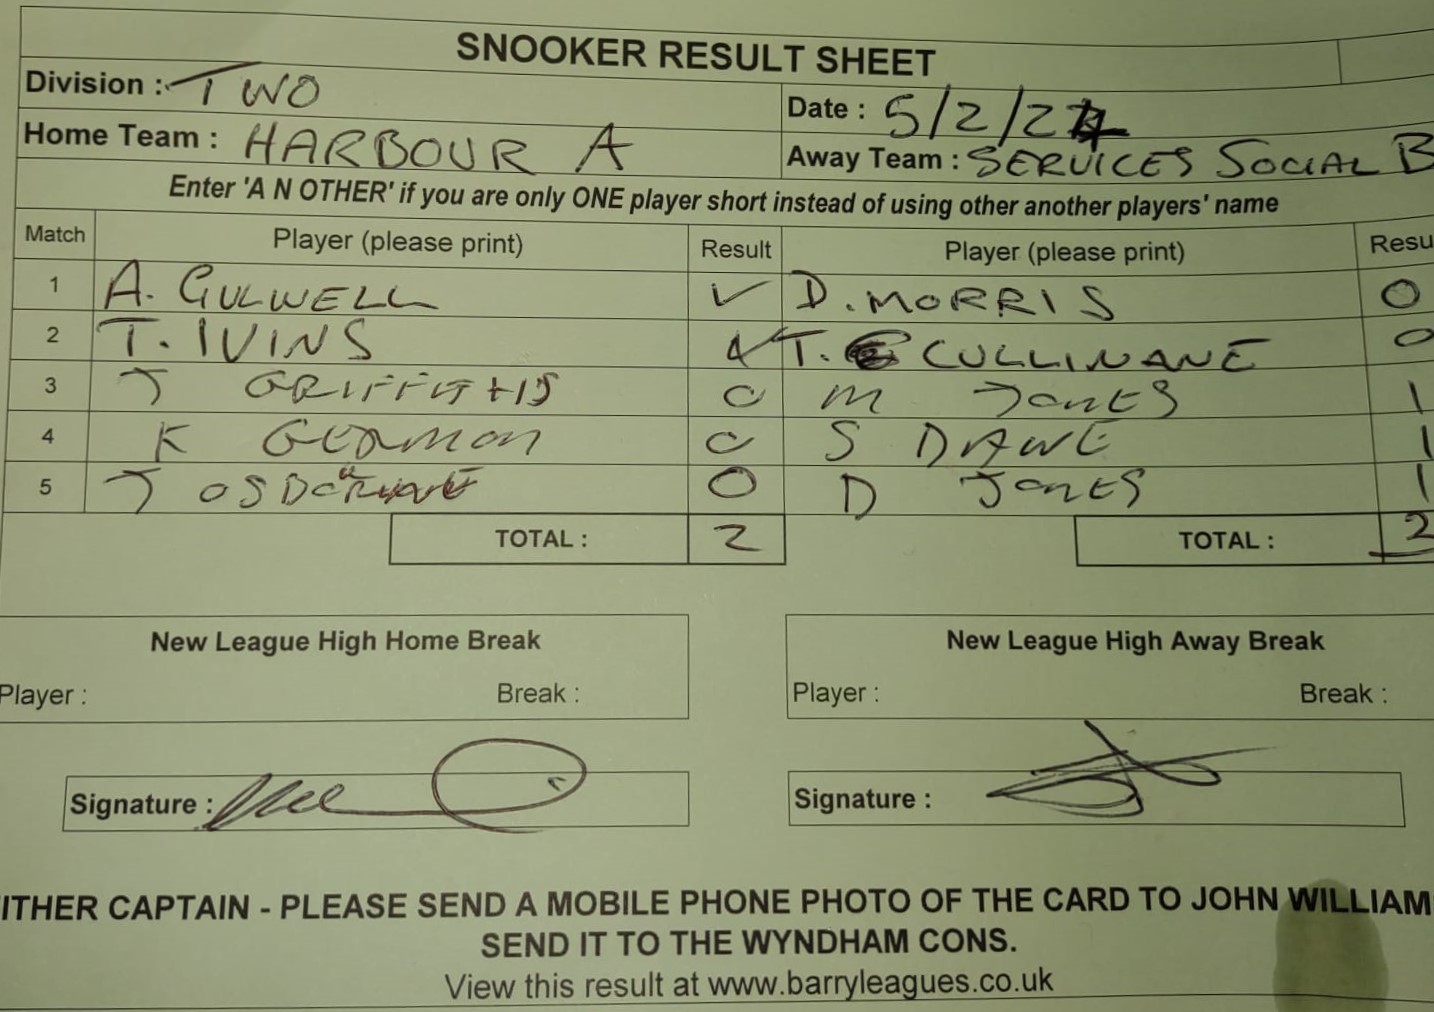 SNOOKER RESULT SHEET
Division : TWO
Date : 5/2/24
Home Team : HARBOUR A
Away Team : SERVICES SOCIAL B
Enter 'A N OTHER' if you are only ONE player short instead of using other another players' name
Match Player (please print) Result Player (please print) Resu
1 A. GULWELL ✓ D. MORRIS 0
2 T. IVINS ✓ T. CULLINANE 0
3 J GRIFFITHS 0 M JONES 1
4 K GERMON 0 S DAWE 1
5 J 0 D JONES 1
TOTAL : 2 TOTAL : 2
New League High Home Break New League High Away Break
Player : Break : Player : Break :
Signature : Signature :
ITHER CAPTAIN - PLEASE SEND A MOBILE PHONE PHOTO OF THE CARD TO JOHN WILLIAM
SEND IT TO THE WYNDHAM CONS.
View this result at www.barryleagues.co.uk